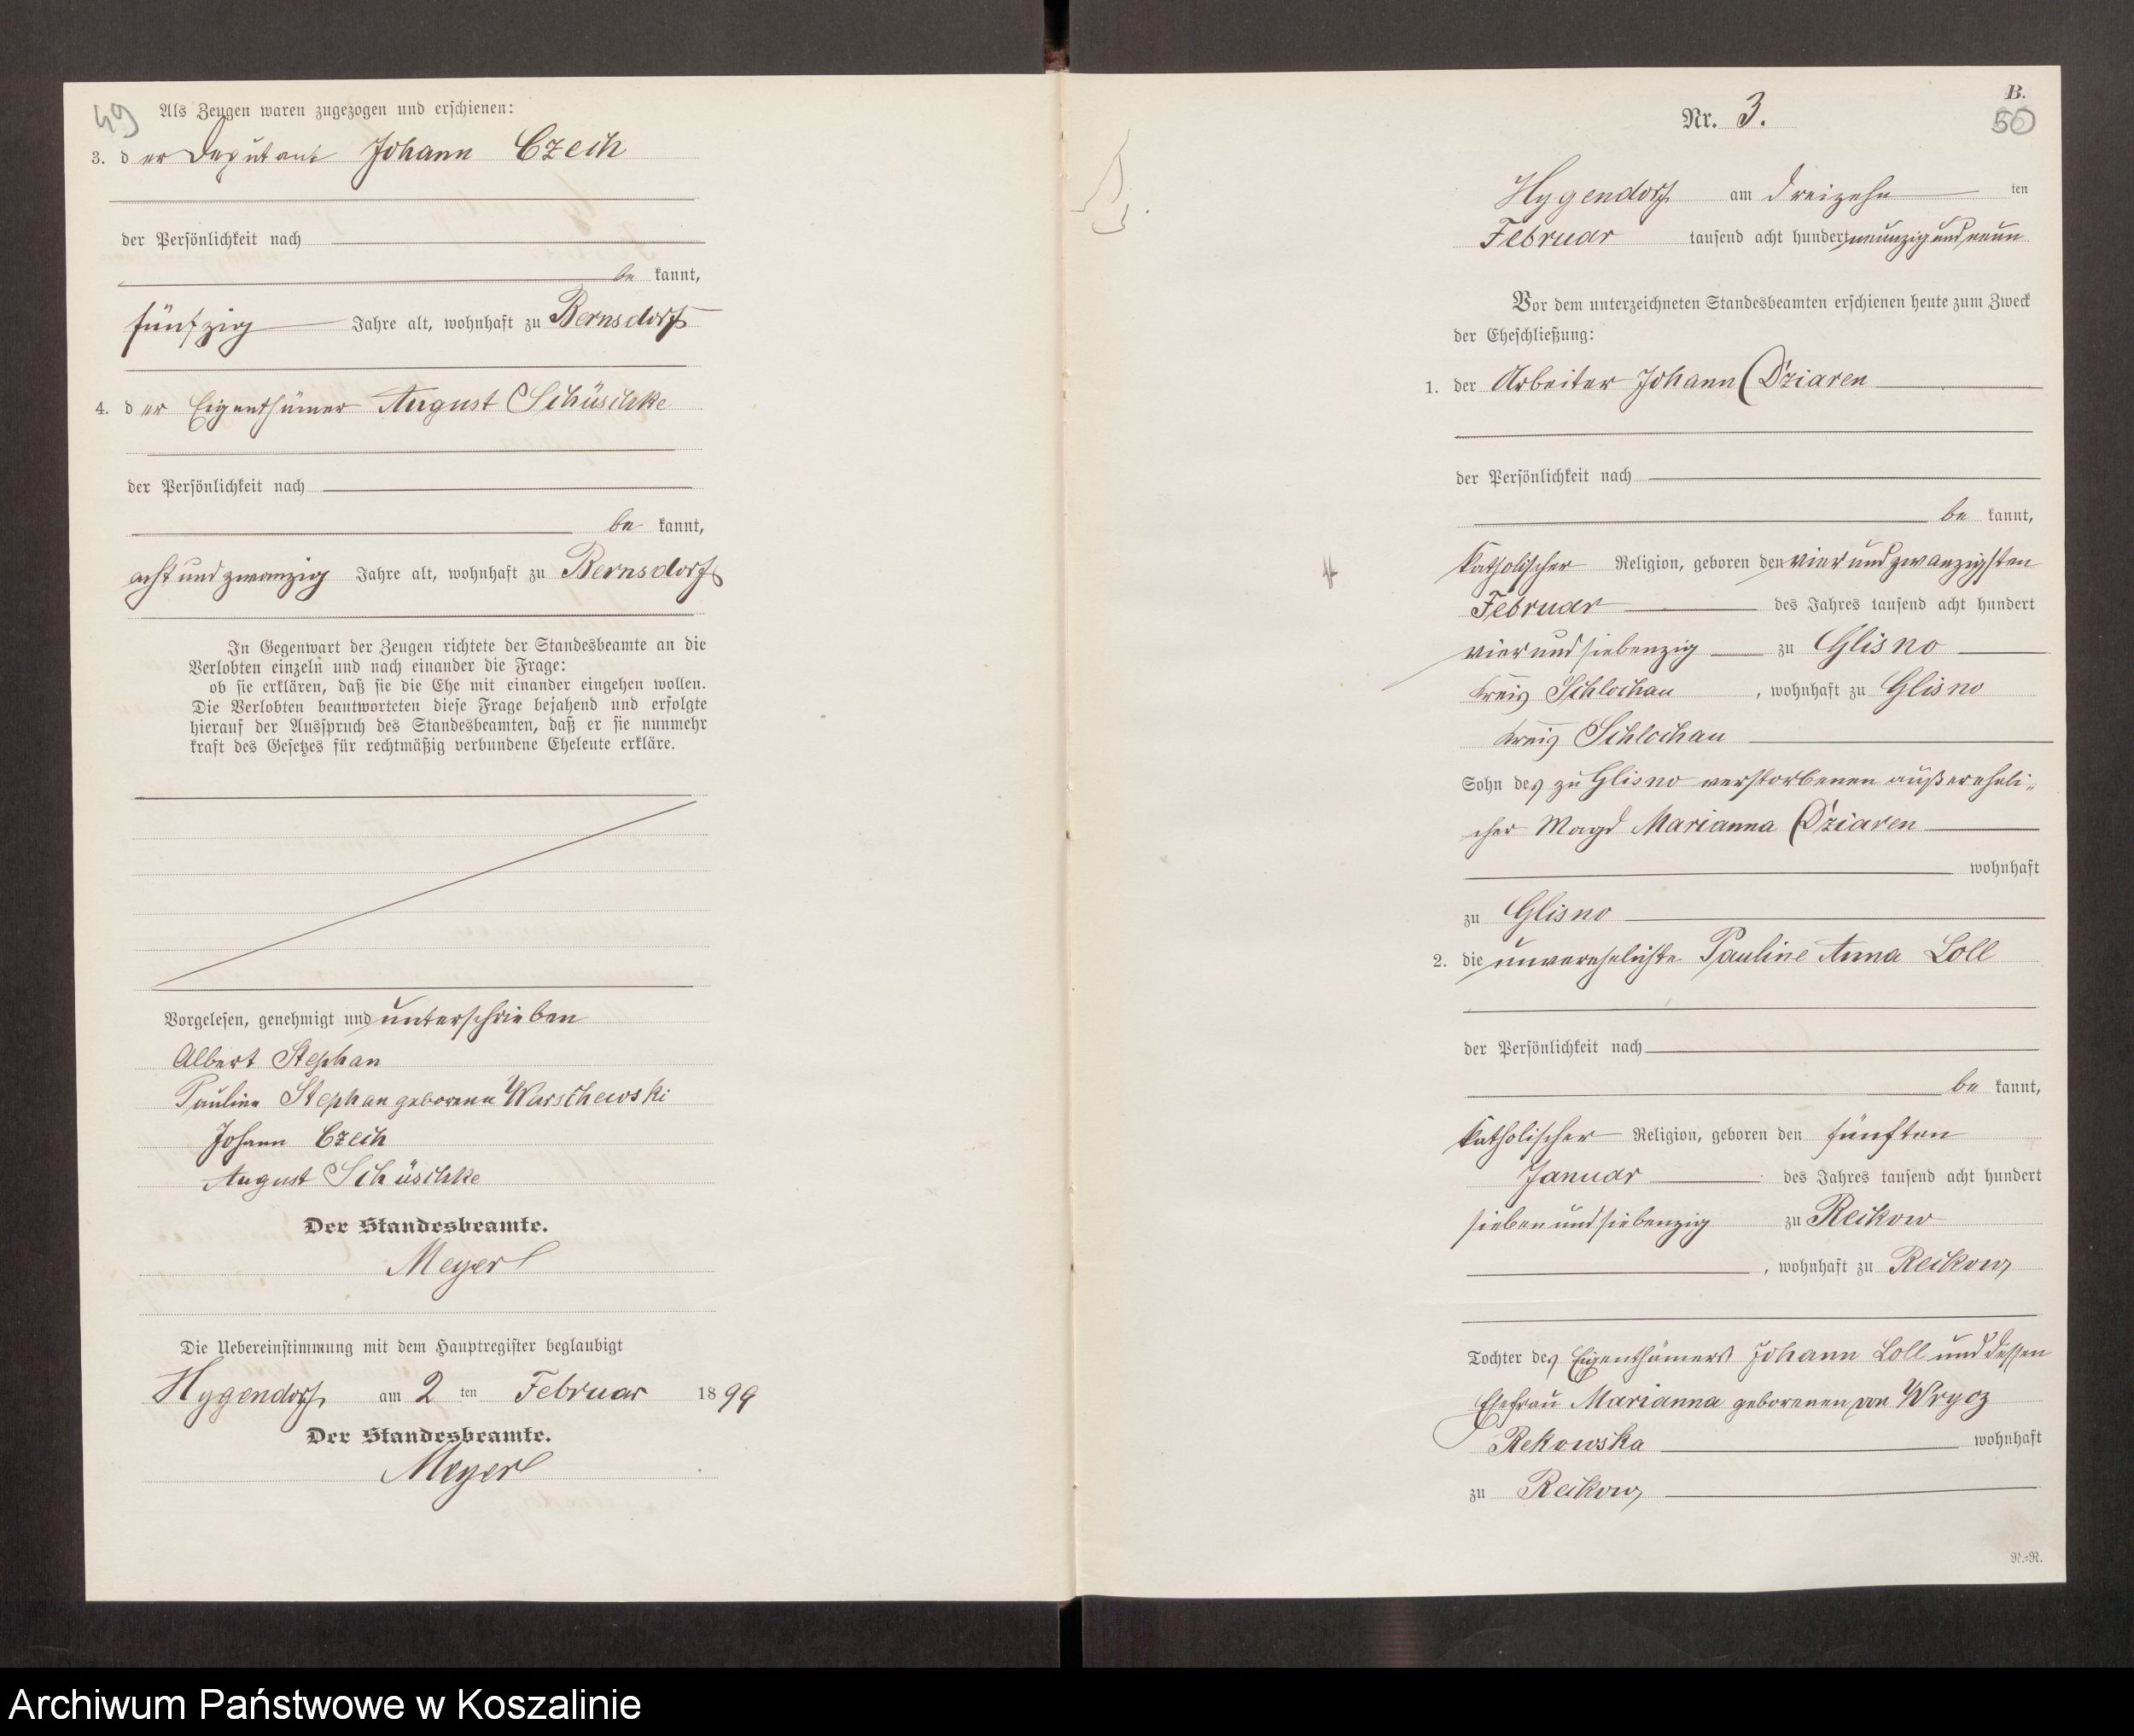 49
Als Zeugen waren zugezogen und erschienen:
3. der Deputant Johann Czech
der Persönlichkeit nach
be kannt,
fünfzig Jahre alt, wohnhaft zu Bernsdorf
4. der Eigenthümer August Schüschke
der Persönlichkeit nach
be kannt,
acht und zwanzig Jahre alt, wohnhaft zu Bernsdorf
In Gegenwart der Zeugen richtete der Standesbeamte an die
Verlobten einzeln und nach einander die Frage:
ob sie erklären, daß sie die Ehe mit einander eingehen wollen.
Die Verlobten beantworteten diese Frage bejahend und erfolgte
hierauf der Ausspruch des Standesbeamten, daß er sie nunmehr
kraft des Gesetzes für rechtmäßig verbundene Eheleute erkläre.
Vorgelesen, genehmigt und unterschrieben
Albert Stephan
Pauline Stephan geborene Warschewski
Johann Czech
August Schüschke
Der Standesbeamte.
Meyer
Die Uebereinstimmung mit dem Hauptregister beglaubigt
Hygendorf am 2 ten Februar 1899
Der Standesbeamte.
Meyer
B.
Nr. 3.
50
Hygendorf am dreizehn ten
Februar tausend acht hundert neunzig und neun
Vor dem unterzeichneten Standesbeamten erschienen heute zum Zweck
der Eheschließung:
1. der Arbeiter Johann Dziaren
der Persönlichkeit nach
be kannt,
katholischer Religion, geboren den vier und zwanzigsten
Februar des Jahres tausend acht hundert
vier und siebenzig zu Glisno
Kreis Schlochau, wohnhaft zu Glisno
Kreis Schlochau
Sohn des zu Glisno verstorbenen außereheli-
cher Magd Marianna Dziaren
wohnhaft
zu Glisno
2. die unverehelichte Pauline Anna Loll
der Persönlichkeit nach
be kannt,
katholischer Religion, geboren den fünften
Januar des Jahres tausend acht hundert
sieben und siebenzig zu Reckow
, wohnhaft zu Reckow
Tochter des Eigenthümers Johann Loll und dessen
Ehefrau Marianna geborenen von Wrycz
Rekowska wohnhaft
zu Reckow
N.=N.
Archiwum Państwowe w Koszalinie